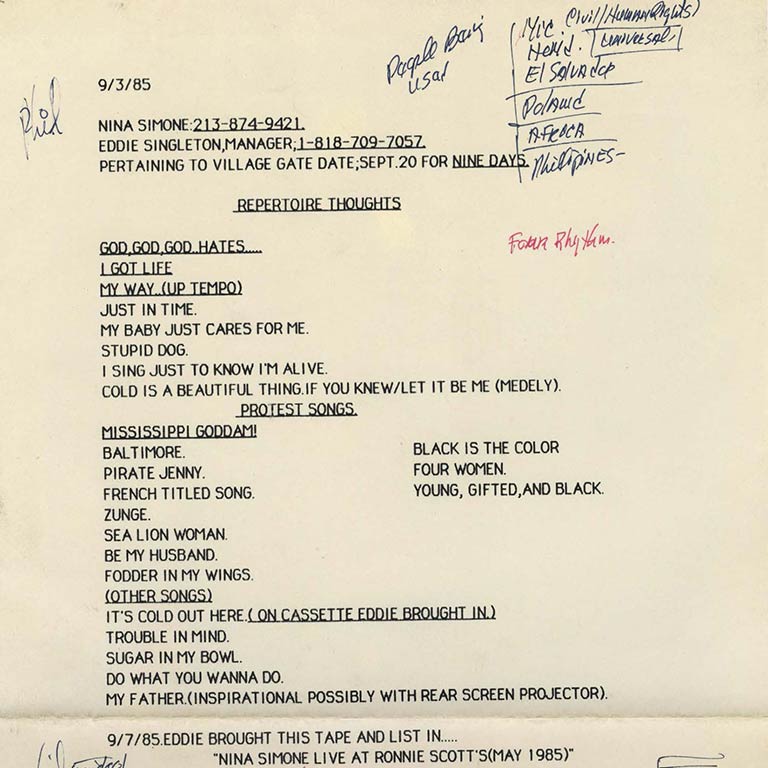 People Being
Used
Mic Civil/HumanRights)
Henid. UNIVERSAL.
El SALVADOR
POLAND
AFRICA
PHILIPINES-
Phil
9/3/85
NINA SIMONE:213-874-9421.
EDDIE SINGLETON,MANAGER;1-818-709-7057.
PERTAINING TO VILLAGE GATE DATE;SEPT.20 FOR NINE DAYS.
REPERTOIRE THOUGHTS
Four Rhythm.
GOD,GOD,GOD..HATES.....
I GOT LIFE
MY WAY..(UP TEMPO)
JUST IN TIME.
MY BABY JUST CARES FOR ME.
STUPID DOG.
I SING JUST TO KNOW I'M ALIVE.
COLD IS A BEAUTIFUL THING.IF YOU KNEW/LET IT BE ME (MEDELY).
PROTEST SONGS.
MISSISSIPPI GODDAM!
BALTIMORE.
PIRATE JENNY.
FRENCH TITLED SONG.
ZUNGE.
SEA LION WOMAN.
BE MY HUSBAND.
FODDER IN MY WINGS.
BLACK IS THE COLOR
FOUR WOMEN.
YOUNG, GIFTED,AND BLACK.
(OTHER SONGS)
IT'S COLD OUT HERE.( ON CASSETTE EDDIE BROUGHT IN.)
TROUBLE IN MIND.
SUGAR IN MY BOWL.
DO WHAT YOU WANNA DO.
MY FATHER.(INSPIRATIONAL POSSIBLY WITH REAR SCREEN PROJECTOR).
9/7/85.EDDIE BROUGHT THIS TAPE AND LIST IN.....
"NINA SIMONE LIVE AT RONNIE SCOTT'S(MAY 1985)"